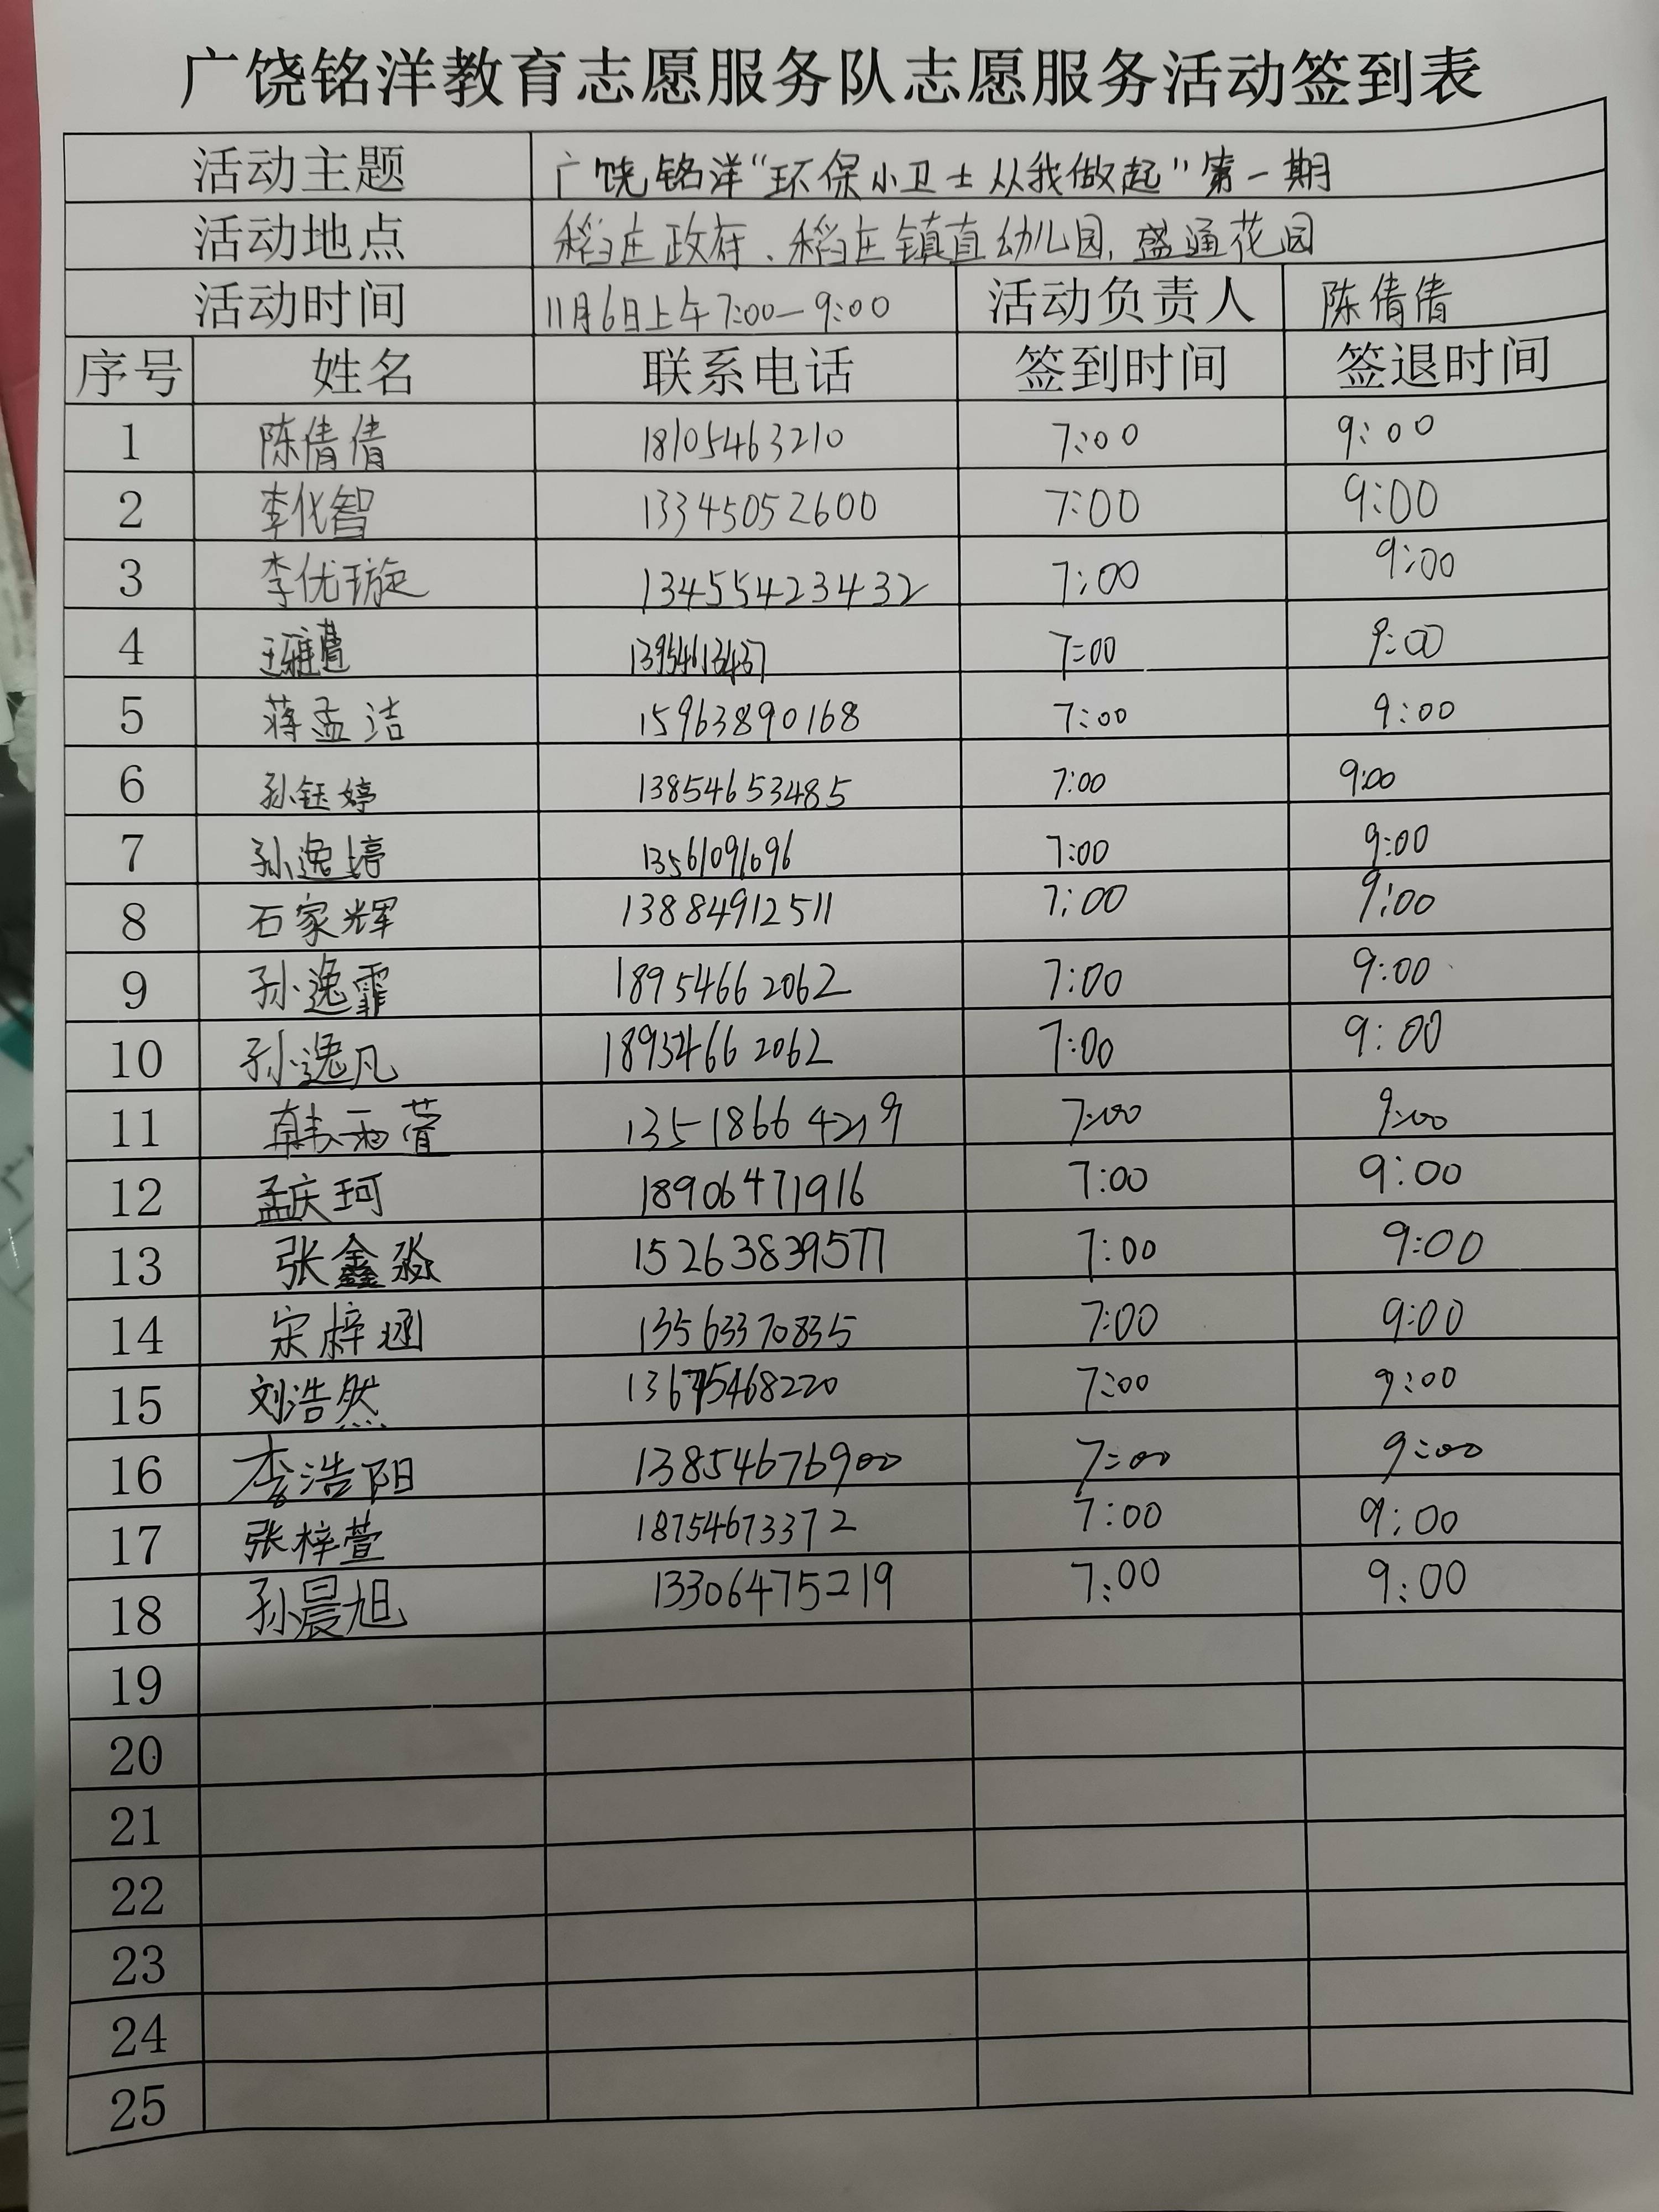 广饶铭洋教育志愿服务队志愿服务活动签到表
活动主题 广饶铭洋“环保小卫士从我做起”第一期
活动地点 稻庄政府、稻庄镇直幼儿园,盛通花园
活动时间 11月6日上午7:00—9:00 活动负责人 陈倩倩
序号 姓名 联系电话 签到时间 签退时间
1 陈倩倩 18105463210 7:00 9:00
2 李化智 13345052600 7:00 9:00
3 李优璇 13455423432 7:00 9:00
4 王雅萱 7:00 9:00
5 蒋孟洁 15963890168 7:00 9:00
6 孙钰婷 13854653485 7:00 9:00
7 孙逸婷 13561091696 7:00 9:00
8 石家辉 13884912511 7:00 9:00
9 孙逸霏 18954662062 7:00 9:00
10 孙逸凡 18954662062 7:00 9:00
11 韩雨萱 13518664219 7:00 9:00
12 孟庆珂 18906471916 7:00 9:00
13 张鑫淼 15263839577 7:00 9:00
14 宋梓涵 13563370835 7:00 9:00
15 刘浩然 7:00 9:00
16 李浩阳 13854676900 7:00 9:00
17 张梓萱 18754673372 7:00 9:00
18 孙晨旭 13306475219 7:00 9:00
19
20
21
22
23
24
25